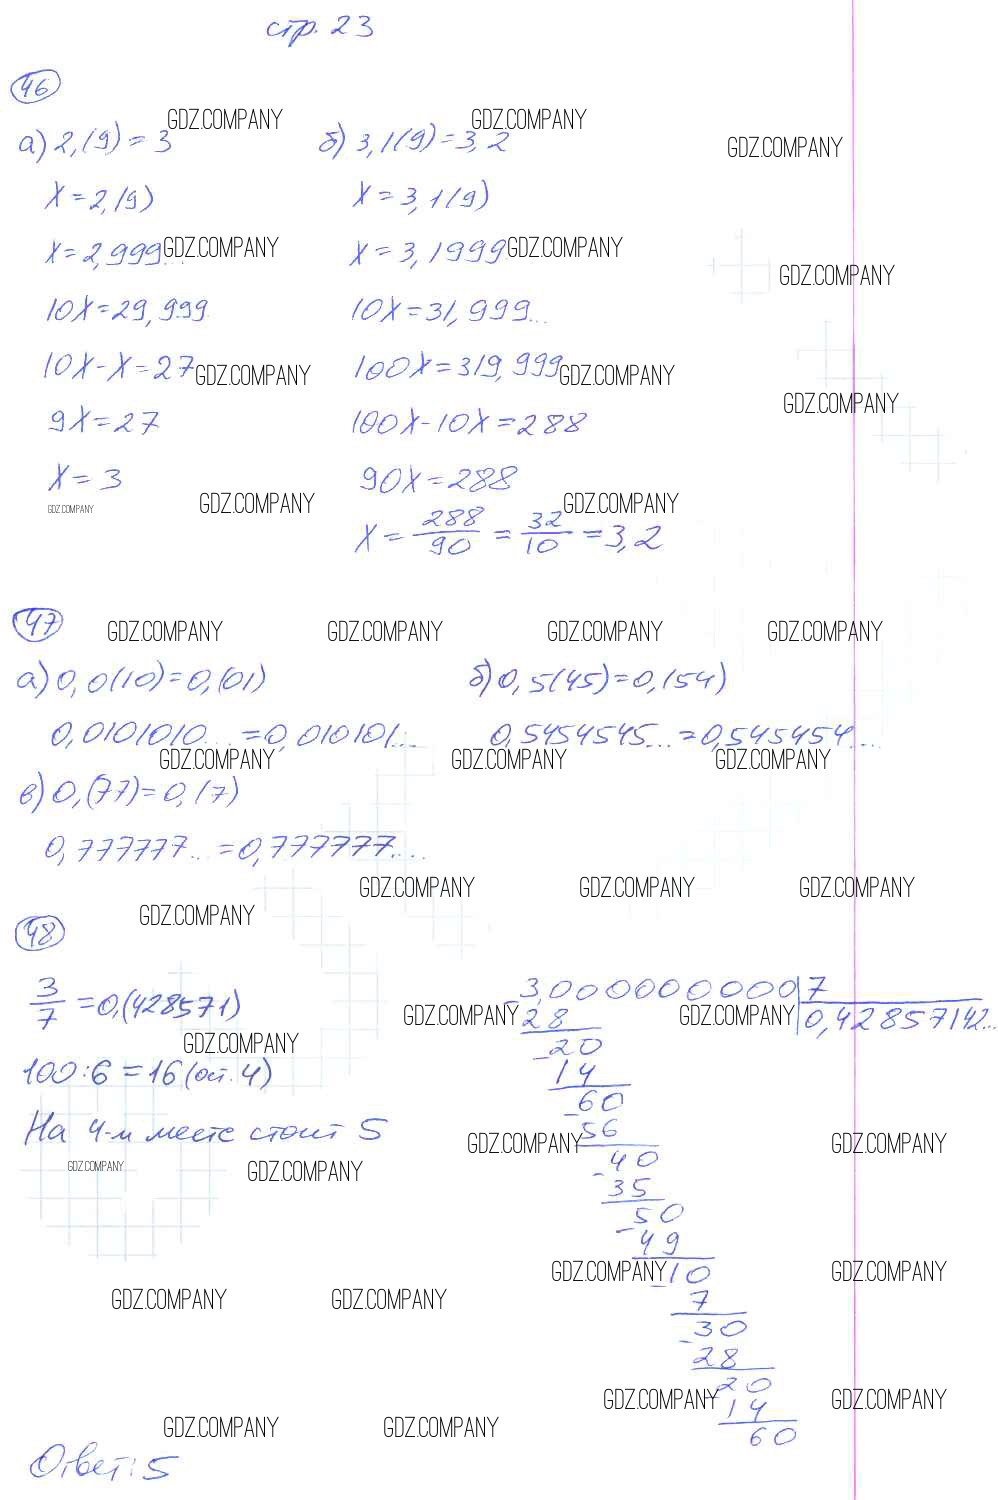 стр. 23
46
а) 2,(9) = 3 GDZ.COMPANY б) 3,1(9) = 3,2 GDZ.COMPANY
GDZ.COMPANY
X = 2,(9) X = 3,1(9)
X = 2,999... GDZ.COMPANY X = 3,1999 GDZ.COMPANY
GDZ.COMPANY
10X = 29,999 10X = 31,999...
10X - X = 27 GDZ.COMPANY 100X = 319,999 GDZ.COMPANY
GDZ.COMPANY
9X = 27 100X - 10X = 288
X = 3 90X = 288
GDZ.COMPANY GDZ.COMPANY GDZ.COMPANY
X = 288/90 = 32/10 = 3,2
47 GDZ.COMPANY GDZ.COMPANY GDZ.COMPANY GDZ.COMPANY
а) 0,0(10) = 0,(01) б) 0,5(45) = 0,(54)
0,0101010... = 0,010101... 0,5454545... = 0,545454...
GDZ.COMPANY GDZ.COMPANY GDZ.COMPANY
в) 0,(77) = 0,(7)
0,777777... = 0,777777...
GDZ.COMPANY GDZ.COMPANY GDZ.COMPANY
GDZ.COMPANY
48
3/7 = 0,(428571) - 3,0000000000 | 7
GDZ.COMPANY GDZ.COMPANY
28 0,42857142...
GDZ.COMPANY
- 20
100 : 6 = 16 (ост. 4) 14
- 60
На 4-м месте стоит 5 56
GDZ.COMPANY GDZ.COMPANY
GDZ.COMPANY GDZ.COMPANY - 40
35
- 50
49
GDZ.COMPANY - 10 GDZ.COMPANY
GDZ.COMPANY GDZ.COMPANY 7
- 30
28
- 20
GDZ.COMPANY GDZ.COMPANY
14
GDZ.COMPANY GDZ.COMPANY 60
Ответ: 5